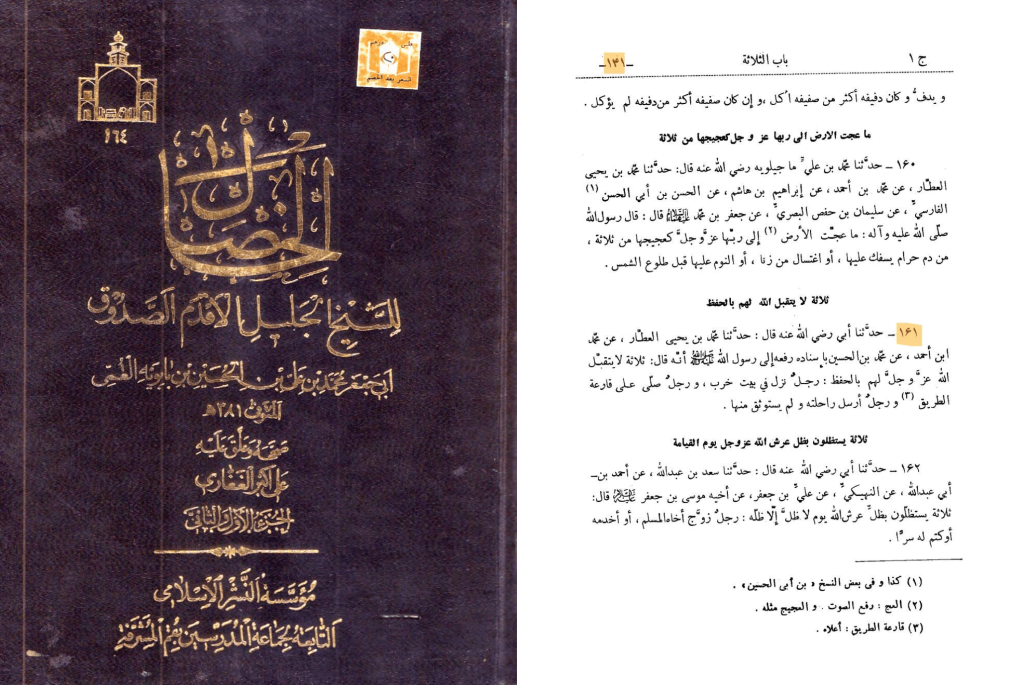 ١٦٤
الخصال
للشيخ الجليل الأقدم الصدوق
أبي جعفر محمد بن علي بن الحسين بن بابويه القمي
المتوفى ٣٨١ هـ
صححه وعلق عليه
علي أكبر الغفاري
الجزء الأول والثاني
مؤسسة النشر الإسلامي
التابعة لجماعة المدرسين بقم المشرفة
ج ١ باب الثلاثة -١٤١-
و يدفُّ و كان دفيفه أكثر من صفيفه اُكل ،و إن كان صفيفه أكثر من دفيفه لم يؤكل .
ما عجت الارض الى ربها عز و جل كعجيجها من ثلاثة
١٦٠ ــ حدَّثنا محمّد بن عليِّ ما جيلويه رضي الله عنه قال: حدَّثنا محمّد بن يحيى
العطّار ، عن محمّد بن أحمد، عن إبراهيم بن هاشم، عن الحسن بن أبي الحسن (١)
الفارسيِّ ، عن سليمان بن حفص البصريِّ ، عن جعفر بن محمّد عليهما السلام قال : قال رسول الله
صلّى الله عليه و آله : ما عجّت الأرض (٢) إلى ربّها عزَّ و جلَّ كعجيجها من ثلاثة ،
من دم حرام يسفك عليها ، أو اغتسال من زنا ، أو النوم عليها قبل طلوع الشمس .
ثلاثة لا يتقبل الله لهم بالحفظ
١٦١ ــ حدَّثنا أبي رضي الله عنه قال : حدَّثنا محمّد بن يحيى العطّار ، عن محمّد
ابن أحمد ، عن محمّد بن الحسين بإسناده رفعه إلى رسول الله أنّه قال: ثلاثة لايتقبّل
الله عزَّ و جلَّ لهم بالحفظ : رجلٌ نزل في بيت خرب ، و رجلٌ صلّى على قارعة
الطريق (٣) و رجلٌ أرسل راحلته و لم يستوثق منها .
ثلاثة يستظلون بظل عرش الله عز و جل يوم القيامة
١٦٢ ــ حدَّثنا أبي رضي الله عنه قال : حدَّثنا سعد بن عبدالله ، عن أحمد بن ــ
أبي عبدالله ، عن النهيكيِّ ، عن عليِّ بن جعفر، عن أخيه موسى بن جعفر قال:
ثلاثة يستظلّون بظلِّ عرش الله يوم لا ظلَّ إلّا ظلّه : رجلٌ زوَّج أخاه المسلم ، أو أخدمه
أوكتم له سرًّا .
(١) كذا و فى بعض النسخ « بن أبى الحسين » .
(٢) العج : رفع الصوت . و العجيج مثله .
(٣) قارعة الطريق : أعلاه .